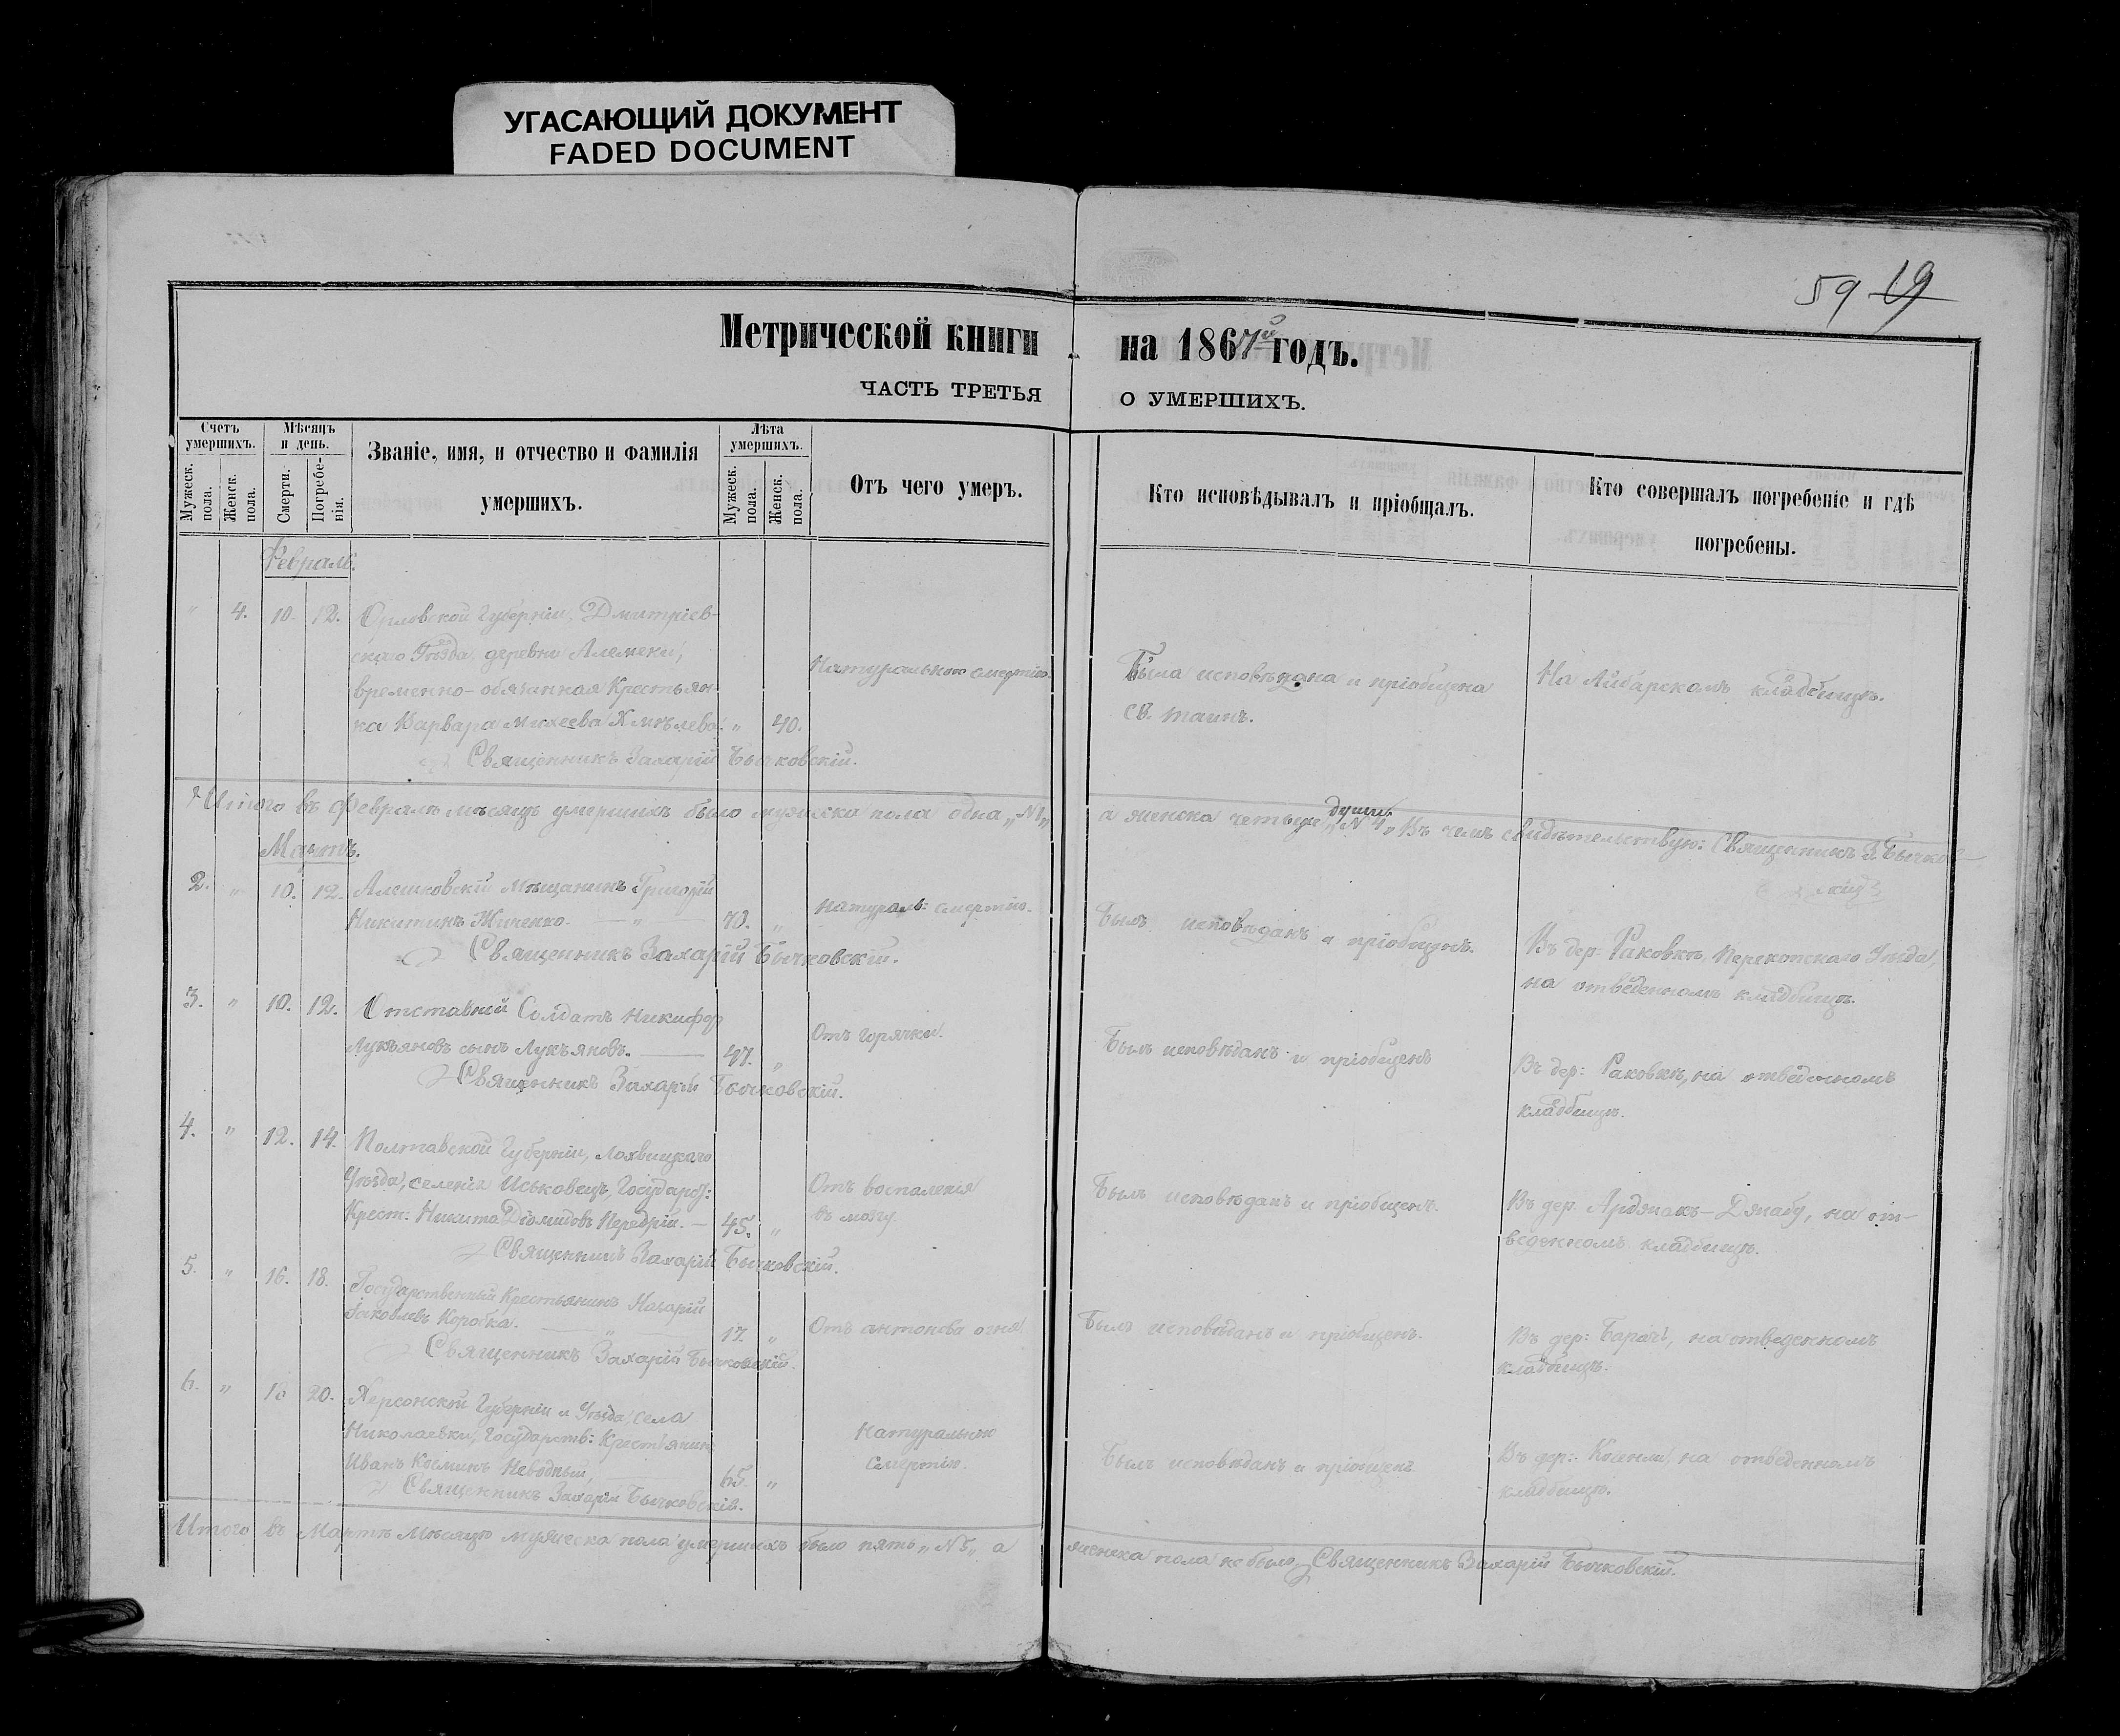 УГАСАЮЩИЙ ДОКУМЕНТ
FADED DOCUMENT
59 19
Метрической книги на 1867й годъ.
ЧАСТЬ ТРЕТЬЯ О УМЕРШИХЪ.
Счетъ умершихъ.
Мужеск. пола.
Женск. пола.
Мѣсяцъ и день.
Смерти.
Погребенія.
Званіе, имя, и отчество и фамилія
умершихъ.
Лѣта умершихъ.
Мужеск. пола.
Женск. пола.
Отъ чего умеръ.
Кто исповѣдывалъ и пріобщалъ.
Кто совершалъ погребеніе и гдѣ
погребены.
Февраль.
" 4. 10. 12. Орловской Губерніи, Дмитріев-
скаго Уѣзда деревни
временно-обязанная Крестьян-
ка Варвара Михеева Хмѣлева. " 40.
Натуральною смертію.
Была исповѣдана и пріобщена
св. таинъ.
На Айбарскомъ кладбищѣ.
Священникъ Захарій Бычковскій.
Итого въ Февралѣ мѣсяцѣ умершихъ было мужеска пола одна „№1„ а женска четыре души „№ 4„ Въ чемъ свидѣтельствую: Священникъ З. Бычков-
скій
Мартъ.
2. " 10. 12. Алешковскій Мѣщанинъ Григорій
Никитинъ " 73. "
натураль: смертію.
Былъ исповѣданъ и пріобщенъ.
Въ дер: Раковкѣ, Перекопскаго Уѣзда,
на отведенномъ кладбищѣ.
Священникъ Захарій Бычковскій.
3. " 10. 12. Отставной Солдатъ Никифор
Лукъяновъ сынъ Лукъяновъ. 47. "
Отъ горячки.
Былъ исповѣданъ и пріобщенъ
Въ дер: Раковкѣ, на отведенномъ
кладбищѣ.
Священникъ Захарій Бычковскій.
4. " 12. 14. Полтавской Губерніи, Лохвицкаго
Уѣзда, селенія Иськовецъ, Государст:
Крест: Никита Діомидовъ Передрій. — 45. "
Отъ воспаленія
въ мозгу.
Былъ исповѣданъ и пріобщенъ.
Въ дер. на от-
веденномъ кладбищѣ.
Священникъ Захарій Бычковскій.
5. " 16. 18. Государственный Крестьянинъ Назарій
Іаковлевъ Коробка. " 17. "
Отъ антонова огня
Былъ исповѣданъ и пріобщенъ.
Въ дер: на отведенномъ
кладбищѣ.
Священникъ Захарій Бычковскій.
6. " 18 20. Херсонской Губерніи и Уѣзда, села
Николаевки, Государств: Крестьянин
Иванъ Косминъ 65. "
Натуральною
смертію.
Былъ исповѣданъ и пріобщенъ
Въ дер: на отведенномъ
кладбищѣ.
Священникъ Захарій Бычковскій.
Итого въ Мартѣ Мѣсяцѣ мужеска пола умершихъ было пять „№5„ а женска пола не было. Священникъ Захарій Бычковскій.